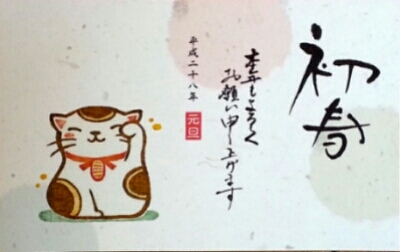 初春
本年もよろしく
お願い申し上げます
平成二十八年
元旦